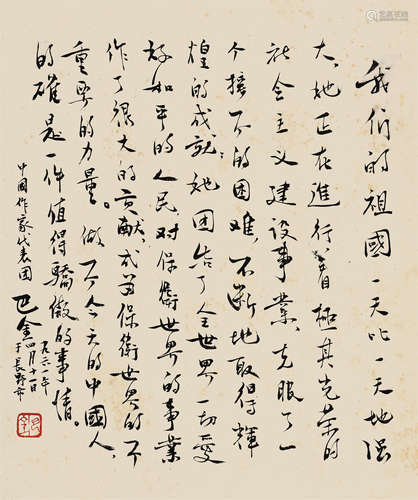 我们的祖國一天比一天地强
大。她正在進行着極其光荣的
社会主义建設事業，克服了一
个接一个的困难，不断地取得輝
煌的成就。她团结了全世界一切爱
好和平的人民，对保衛世界的事業
作了很大的贡献，成为保衛世界的一个
重要的力量。做一个今天的中國人，
的確是一件值得驕傲的事情。
中國作家代表团
巴金
一九六一年
四月十一日
于長野市